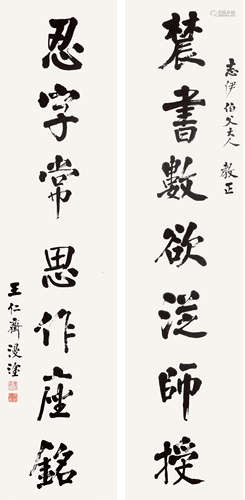 志伊伯父大人 教正
辳書數欲從師授
忍字常思作座銘
王仁齋漫塗